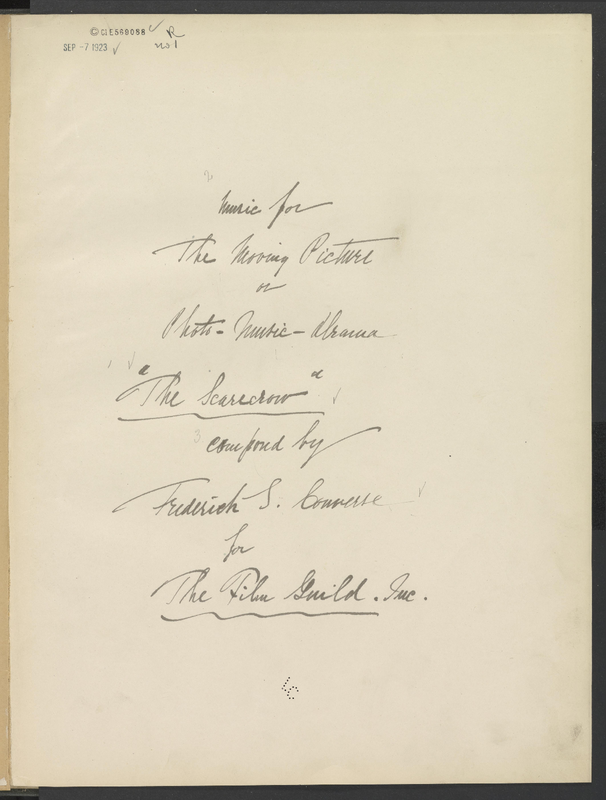 © Cl E569088 ✓ R
SEP -7 1923 ✓ no 1
2
Music for
The Moving Picture
or
Photo-Music-Drama
1 ✓
"The Scarecrow" ✓
3 composed by
Frederick S. Converse ✓
for
The Film Guild. Inc.
LC